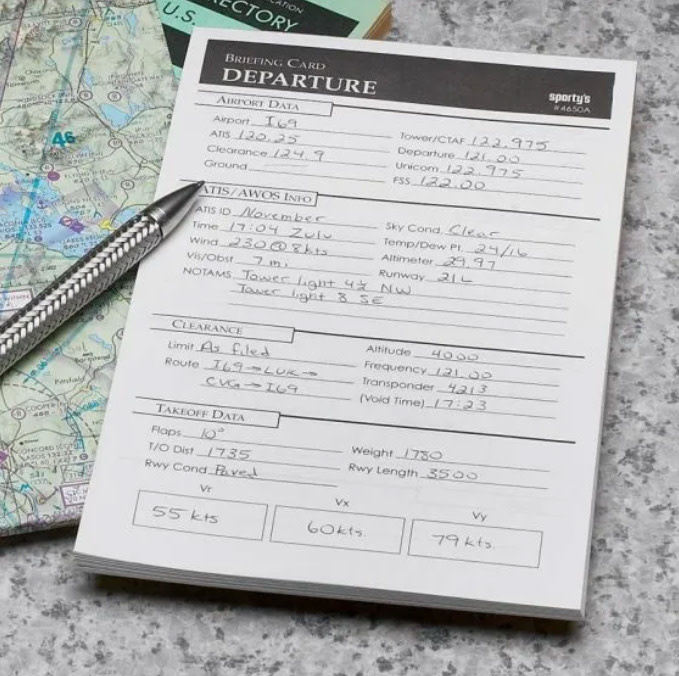 CATION
U.S.
ECTORY
BRIEFING CARD
DEPARTURE
sporty's
#4650A
AIRPORT DATA
Airport I69
Tower/CTAF 122.975
ATIS 120.25
Departure 121.00
Clearance 124.9
Unicom 122.975
Ground
FSS 122.00
ATIS/AWOS INFO
ATIS ID November
Sky Cond. Clear
Time 17:04 Zulu
Temp/Dew Pt. 24/16
Wind 230@8kts
Altimeter 29.97
Vis/Obst 7 m.
Runway 21L
NOTAMS Tower light 4½ NW
Tower light 8 SE
CLEARANCE
Limit As filed
Altitude 4000
Route I69→LUK→
Frequency 121.00
CVG→I69
Transponder 4213
(Void Time) 17:23
TAKEOFF DATA
Flaps 10°
T/O Dist 1735
Weight 1780
Rwy Cond Paved
Rwy Length 3500
Vr
Vx
Vy
55 kts
60kts.
79 kts.
46